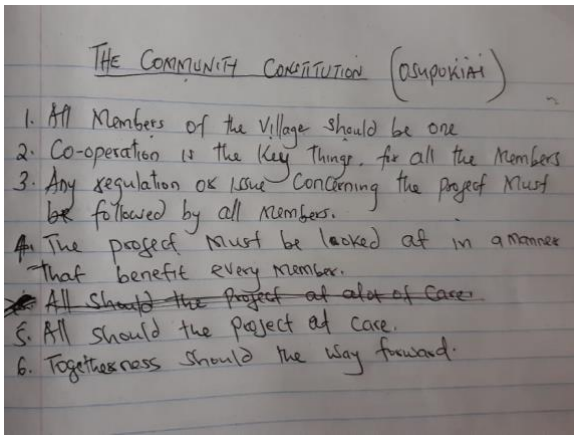 THE COMMUNITY CONSTITUTION (OSUPUKIAI)
1. All Members of the Village should be one
2. Co-operation is the Key Things, for all the Members
3. Any regulation or issue Concerning the project Must
be followed by all members.
4. The project Must be looked at in a manner
that benefit every member.
All should the project at alot of care.
5. All should the project at care.
6. Togetherness should the way forward.